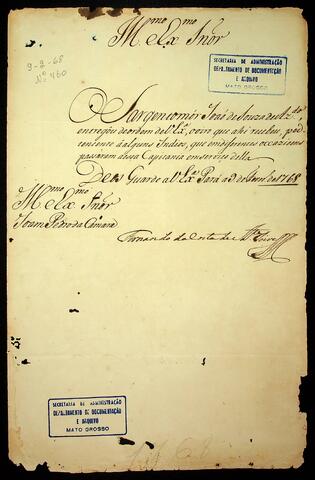 Mmo e Exmo Snor
9-2-68
Nº 460
SECRETARIA DE ADMINISTRAÇÃO
DEPARTAMENTO DE DOCUMENTAÇÃO
E ARQUIVO
MATO GROSSO
O Sargento mór José de Souza de Azdo,
entregou de ordem de V. Exª, o oiro que ahi recebeu, per
tencente á alguns Indios, que em diferentes occazioens
passaram a essa Capitania em serviço della
Deos Guarde a V. Exª Pará a 9 de 1768
Mmo e Exmo Snor
Joam Pedro da Camara
Fernando da Costa de Atde Teive
SECRETARIA DE ADMINISTRAÇÃO
DEPARTAMENTO DE DOCUMENTAÇÃO
E ARQUIVO
MATO GROSSO